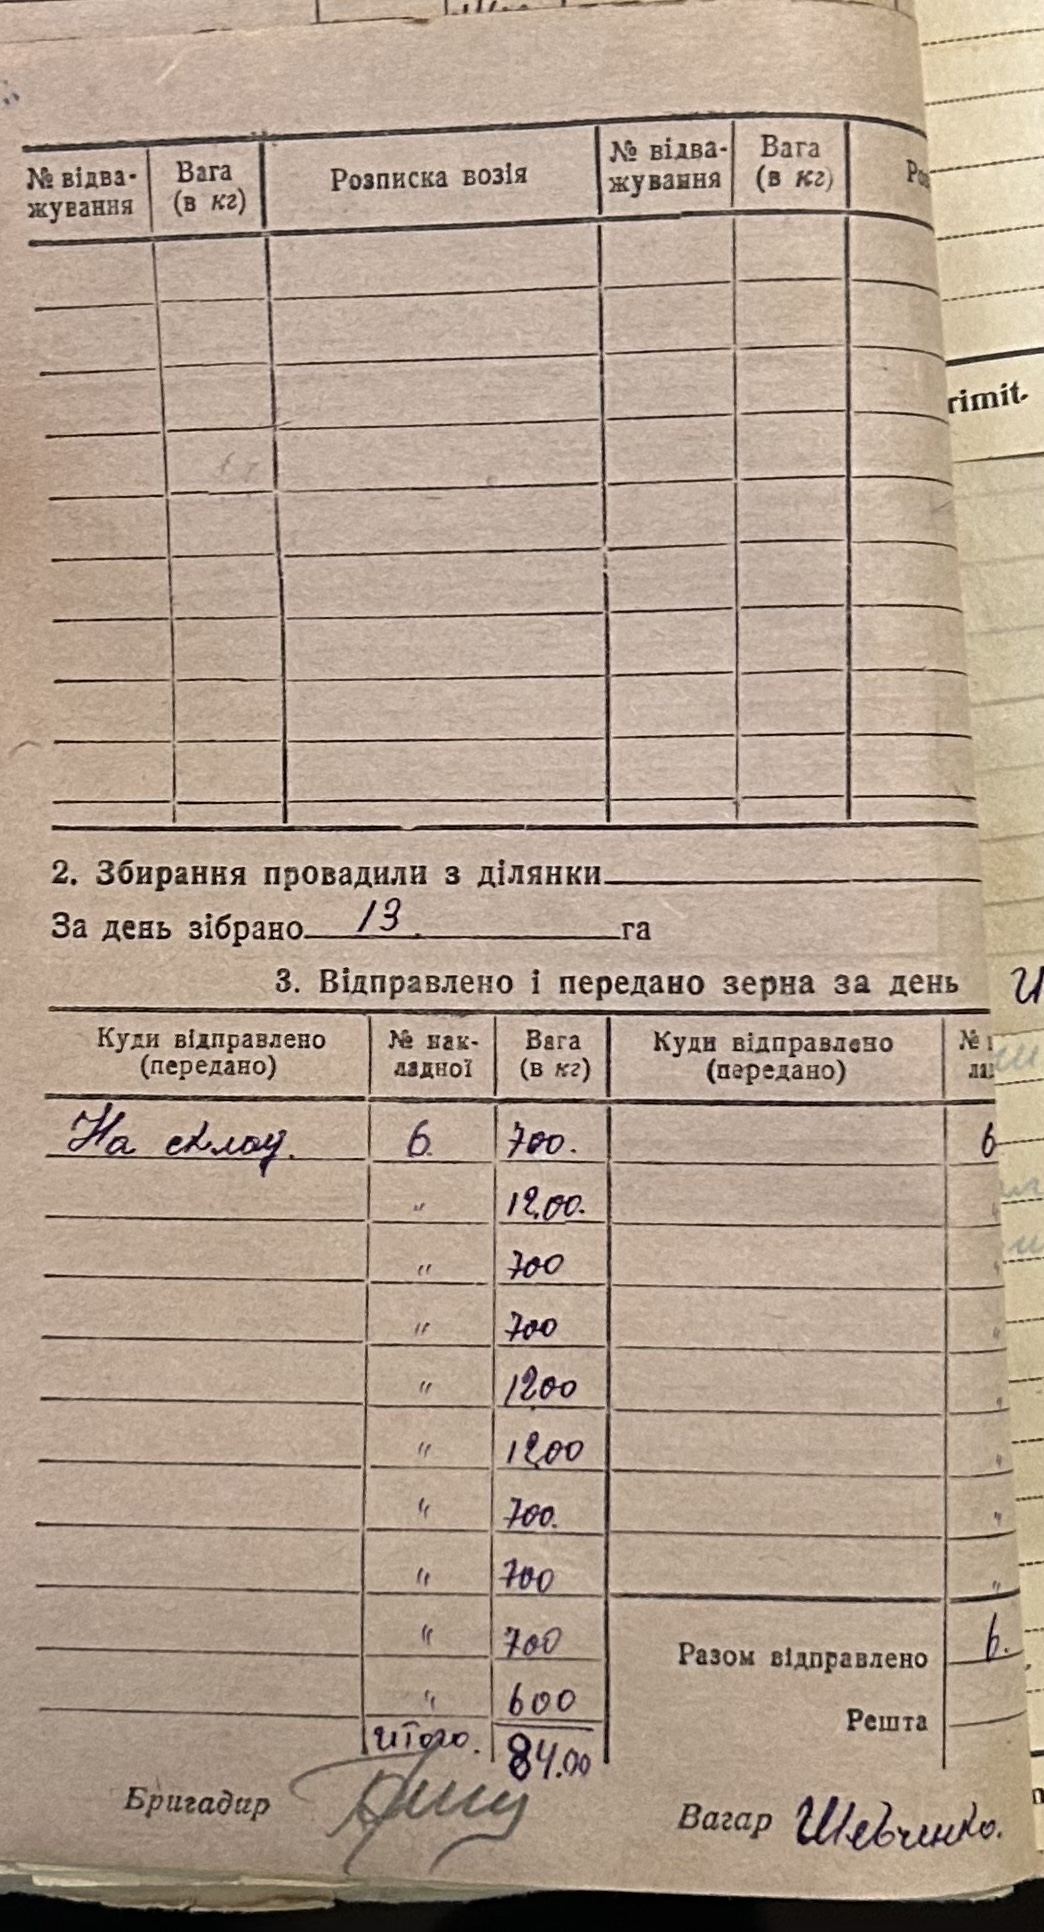 № відва-жування Вага (в кг) Розписка возія № відва-жування Вага (в кг)
rimit.
2. Збирання провадили з ділянки
За день зібрано 13. га
3. Відправлено і передано зерна за день
Куди відправлено (передано) № нак-ладної Вага (в кг) Куди відправлено (передано) №
На склад. 6. 700. 6
" 12,00. "
" 700 "
" 700 "
" 1200 "
" 12,00 "
" 700. "
" 700 "
" 700 Разом відправлено 6.
" 600 Решта
Итого. 84.00
Бригадир Вагар Шевченко.